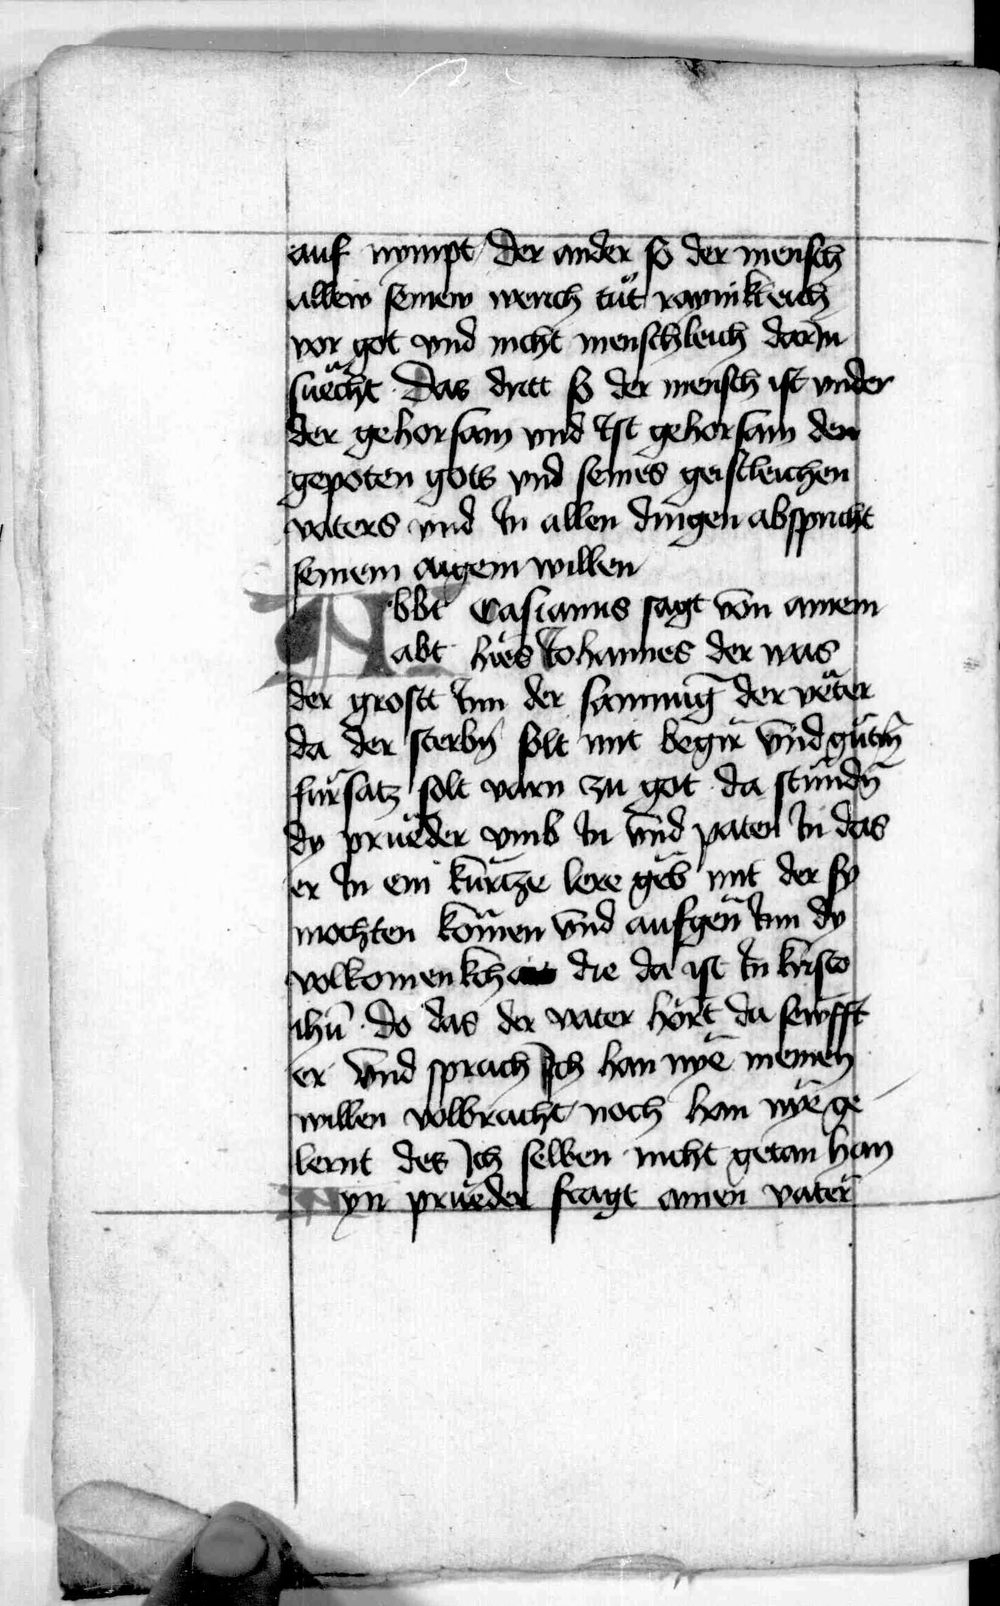 auf nympt Der ander so der mensch
allew seinew werch tuͦt raynikleich
vor got vnd nicht menschleich darin
suͤcht Das dritt so der mensch ist vnder
der gehorsam vnd Ist gehorsam den
gepoten gots vnd seines geistleichen
vaters vnd In allen dingen abspricht
seinem aigem willen
Abbt Casianus sagt von ainem
abt hies Johannes der was
der grostt Inn der samnūg der veter
da der sterbn̄ solt mit begir vnd gutm̄
fursatz solt varn zu got da stundn̄
dy prueder vmb In vnd paten In das
er In ein kurtze lere geb mit der sy
mochten komen vnd aufgen Inn dy
volkomenkch die da ist In kristo
ihū Do das der vater hort da sewfft
er vnd sprach Ich han nye meinen
willen volbracht noch han nye ge
lernt des Ich selben nicht getan han
Ayn prueder fragt ainen vater